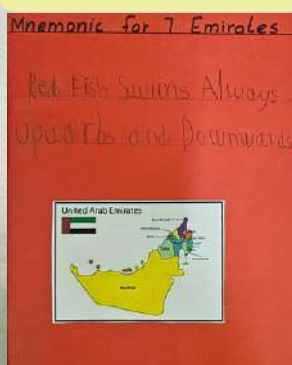 Mnemonic for 7 Emirates
Red Fish Swims Always
Upwards and Downwards
United Arab Emirates